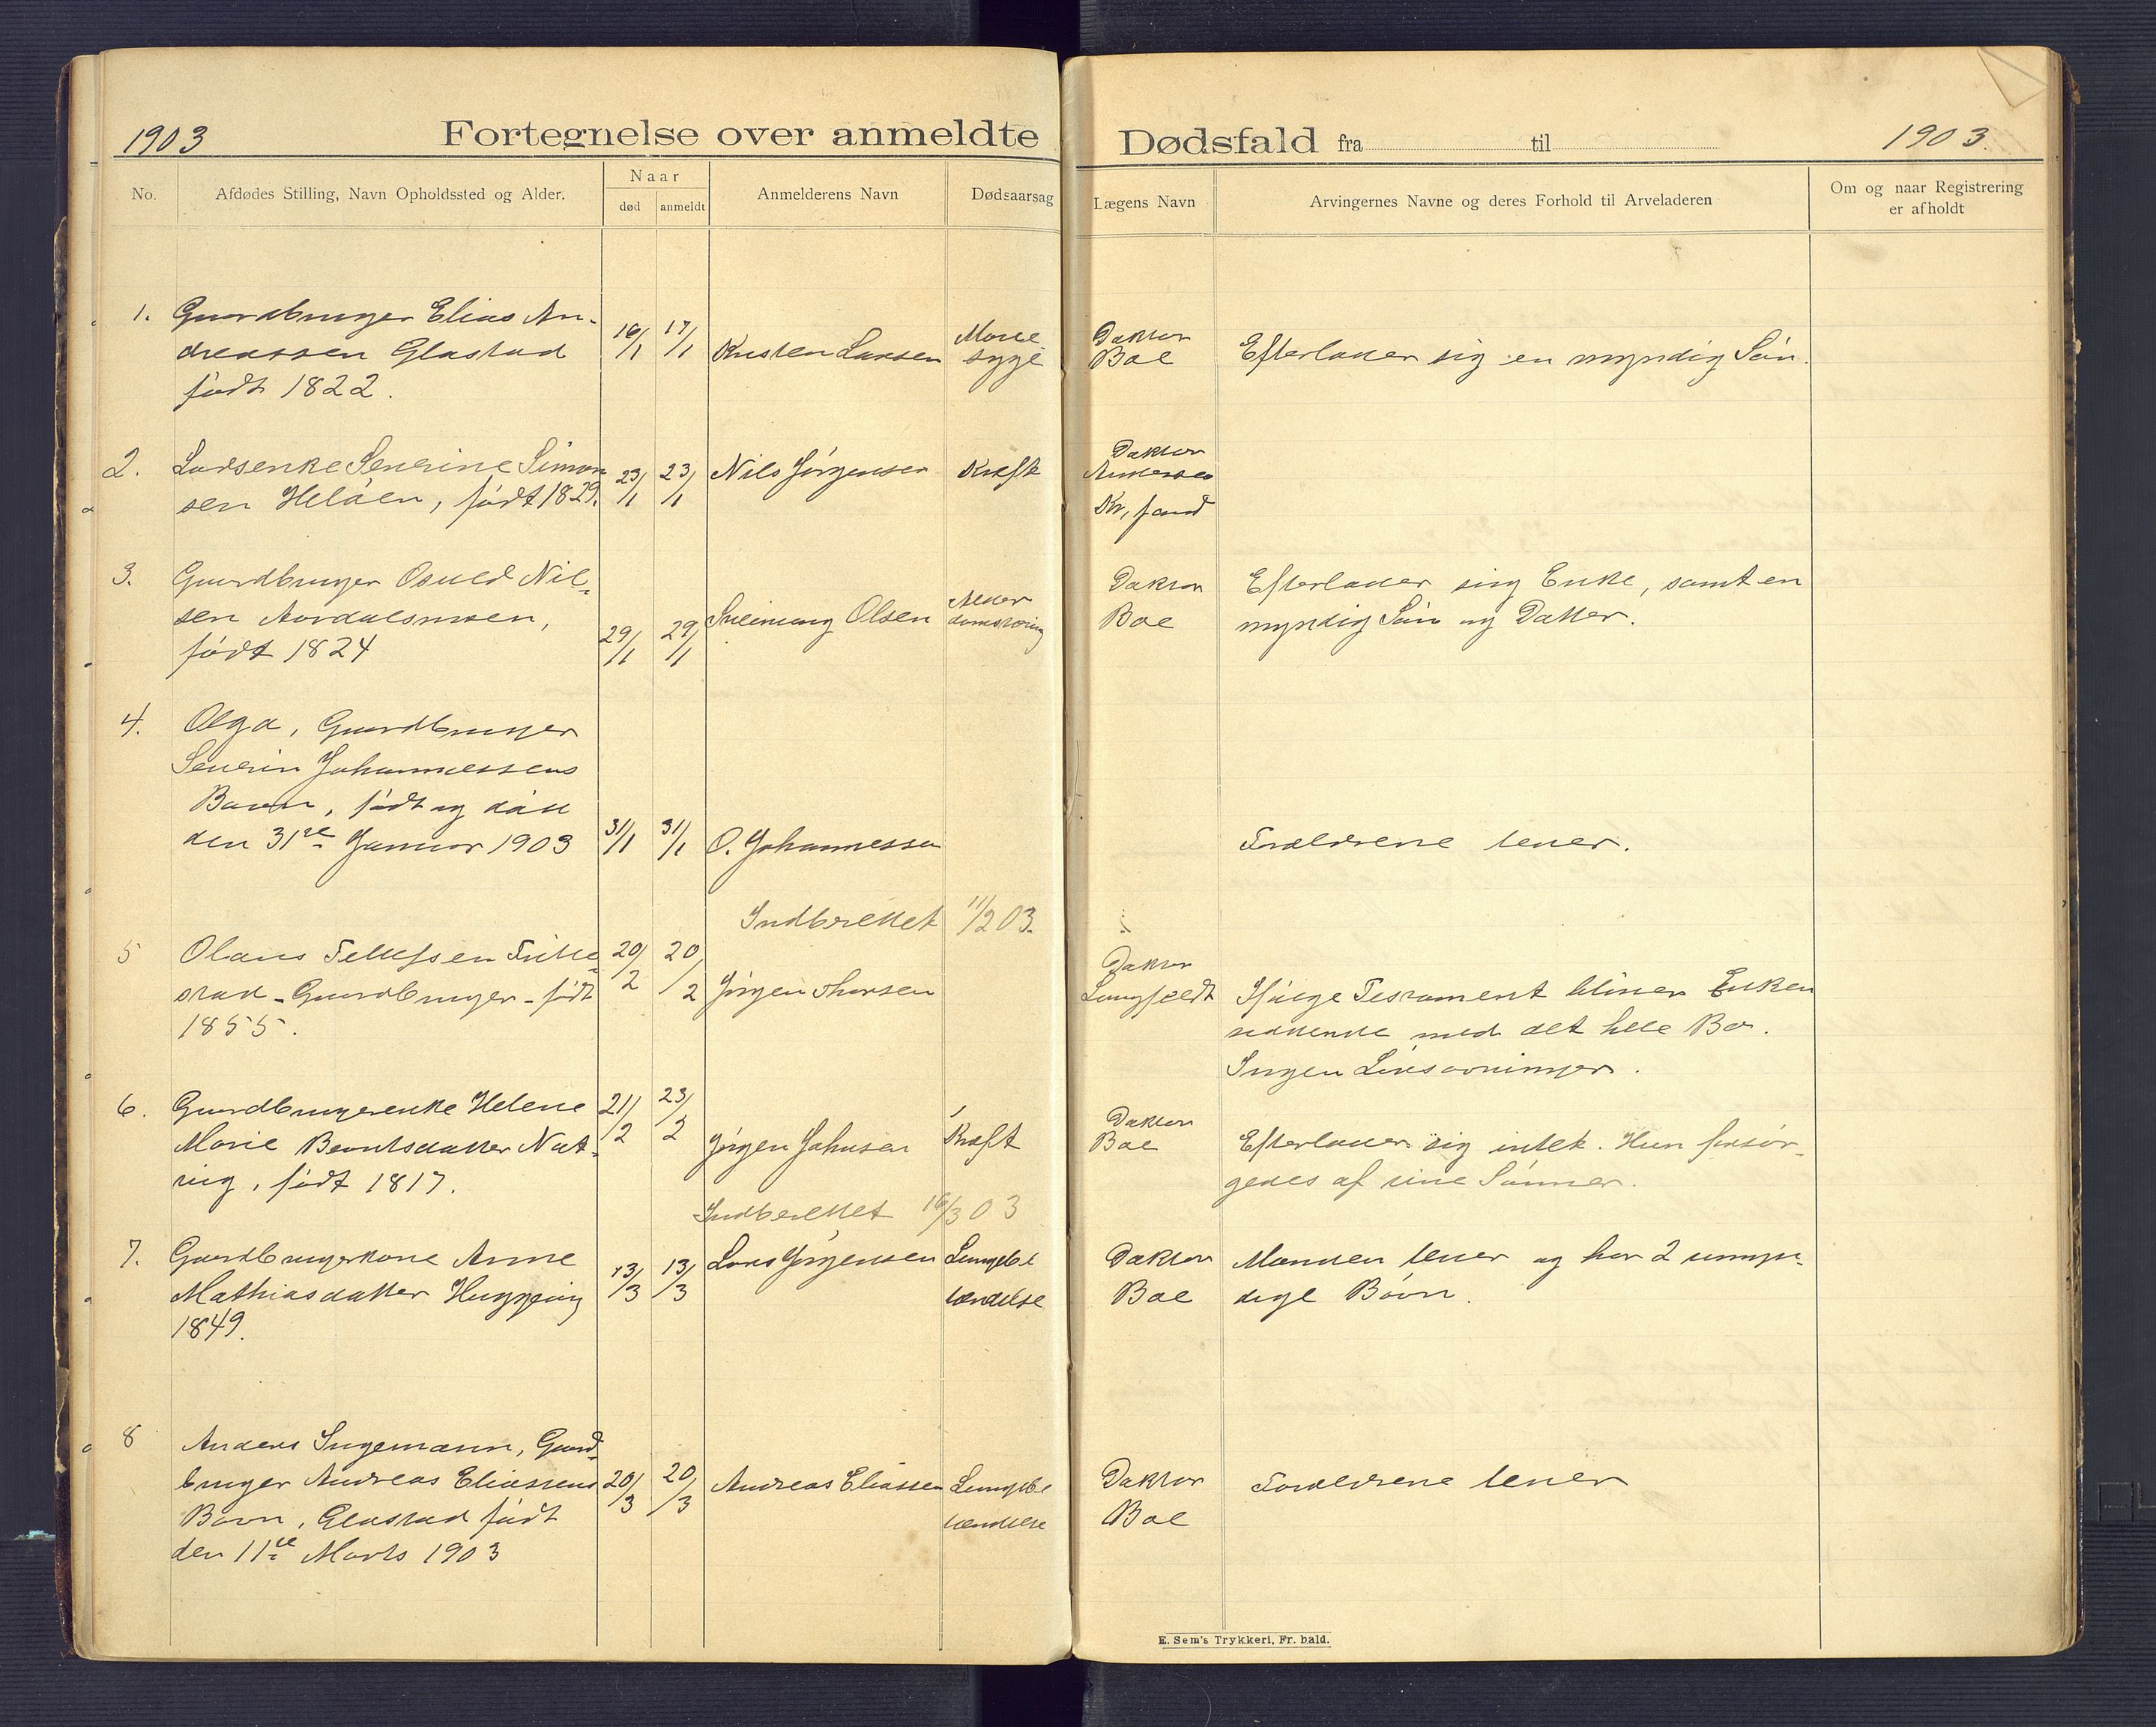 1903
Fortegnelse over anmeldte
Dødsfald fra til
1903.
No.
Afdødes Stilling, Navn Opholdssted og Alder.
Naar
død
anmeldt
Anmelderens Navn
Dødsaarsag
Lægens Navn
Arvingernes Navne og deres Forhold til Arveladeren
Om og naar Registrering
er afholdt
1. Gaardbruger Elias An-
dreassen Glastad
født 1822.
16/1 17/1
Kristen Larsen
Mave
syge
Doktor
Boe
Efterlader sig en myndig Søn.
2. Losenke Severine Simon
sen Heløen, født 1829.
23/1 23/1
Nils Jørgensen
Kræft
Doktor
Andersen
Kr, sand
3. Gaardbruger Osuld Nil-
sen Aardalsmoen,
født 1824
29/1 29/1
Sveinung Olsen
Alder
Doktor
Boe
Efterlader sig Enke, samt en
myndig Søn og Datter.
4. Olga, Gaardbruger
Severin Johannessens
Barn, født og død
den 31te Januar 1903
31/1 31/1
O. Johannessen
Forældrene lever.
Indberettet 11/2 03.
5 Olaus Tellefsen
stad - Gaardbruger - født
1855.
20/2 20/2
Jørgen Thorsen
Doktor
Ifølge Testament bliver Enken
siddende med det hele Bo.
Ingen Livsarvinger.
6. Gaardbrugerenke Helene
Marie Berntsdatter Nat-
vig, født 1817.
21/2 23/2
Jørgen Johnsen
Kræft
Doktor
Boe
Efterlader sig intet. Hun forsør-
gedes af sine Sønner.
Indberettet 16/3 03
7. Gaardbrugerkone Anne
Mathiasdatter
1849.
13/3 13/3
Lars Jørgensen
Lungebe
tændelse
Doktor
Boe
Manden lever og har 2 umyn-
dige Børn.
8 Anders Ingemann, Gaard-
bruger Andreas Eliassens
Barn, Glastad født
den 11te Marts 1903
20/3 20/3
Andreas Eliassen
Lungebe
tændelse
Doktor
Boe
Forældrene lever
E. Sem's Trykkeri, Fr. hald.